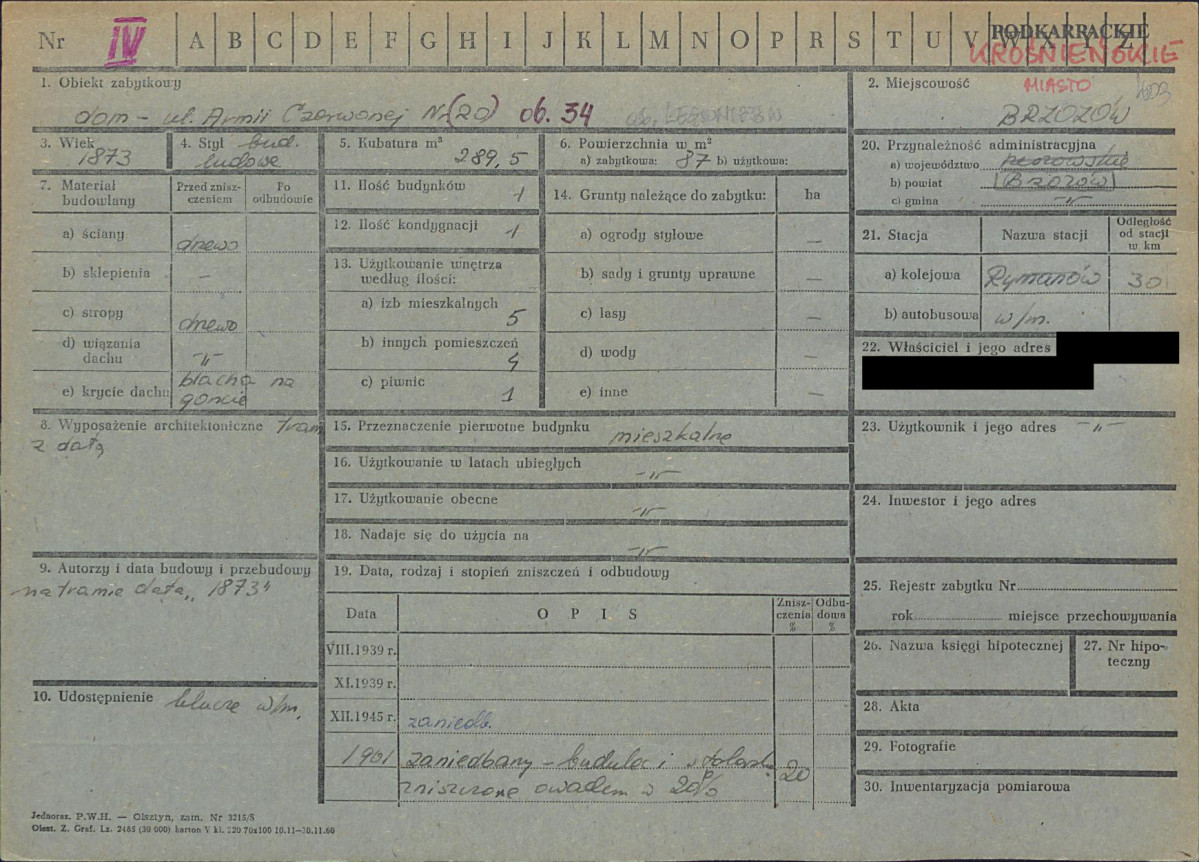 Nr IV A B C D E F G H I J K L M N O P R S T U V W X Y Z
PODKARPACKIE
KROŚNIEŃSKIE
1. Obiekt zabytkowy
dom - ul. Armii Czerwonej Nr (20) ob. 34
2. Miejscowość
MIASTO
BRZOZÓW
3. Wiek
1873
4. Styl bud.
ludowe
5. Kubatura m³
289,5
6. Powierzchnia w m²
a) zabytkowa: 87 b) użytkowa:
20. Przynależność administracyjna
a) województwo rzeszowskie
b) powiat Brzozów
c) gmina -"-
7. Materiał budowlany
Przed zniszczeniem
Po odbudowie
a) ściany drewo
b) sklepienia —
c) stropy drewo
d) wiązania dachu -"-
e) krycie dachu blacha na goncie
11. Ilość budynków 1
12. Ilość kondygnacji 1
13. Użytkowanie wnętrza według ilości:
a) izb mieszkalnych 5
b) innych pomieszczeń 4
c) piwnic 1
14. Grunty należące do zabytku: ha
a) ogrody stylowe —
b) sady i grunty uprawne —
c) lasy —
d) wody —
e) inne —
21. Stacja
Nazwa stacji
Odległość od stacji w km
a) kolejowa Rymanów 30
b) autobusowa w/m.
22. Właściciel i jego adres
8. Wyposażenie architektoniczne tram
z datą
15. Przeznaczenie pierwotne budynku mieszkalne
16. Użytkowanie w latach ubiegłych -"-
17. Użytkowanie obecne -"-
18. Nadaje się do użycia na -"-
23. Użytkownik i jego adres -"-
24. Inwestor i jego adres
9. Autorzy i data budowy i przebudowy
na tramie data „1873"
19. Data, rodzaj i stopień zniszczeń i odbudowy
Data
O P I S
Zniszczenia %
Odbudowa %
VIII.1939 r.
XI.1939 r.
XII.1945 r. zaniedb.
1961 zaniedbany - budulec i stolark.
zniszczone owadem w 20% 20
25. Rejestr zabytku Nr
rok miejsce przechowywania
26. Nazwa księgi hipotecznej
27. Nr hipoteczny
10. Udostępnienie klucze w/m.
28. Akta
29. Fotografie
30. Inwentaryzacja pomiarowa
Jednoraz. P.W.H. — Olsztyn, zam. Nr 3215/S
Olszt. Z. Graf. Lz. 2485 (30 000) karton V kl. 220 70x100 10.11—30.11.60